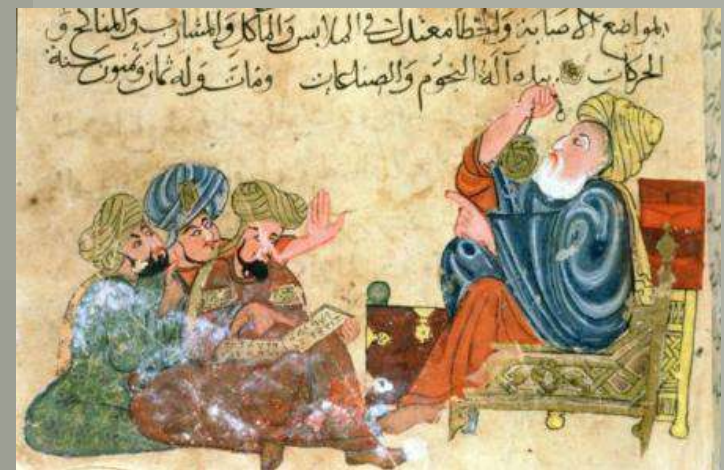 بمواضع الاصابة والخطا معندك في الملابس والمآكل والمشارب والمناكح و
الحركات بيده آلة النجوم والصناعات ومات وله ثمان وثمنون سنة